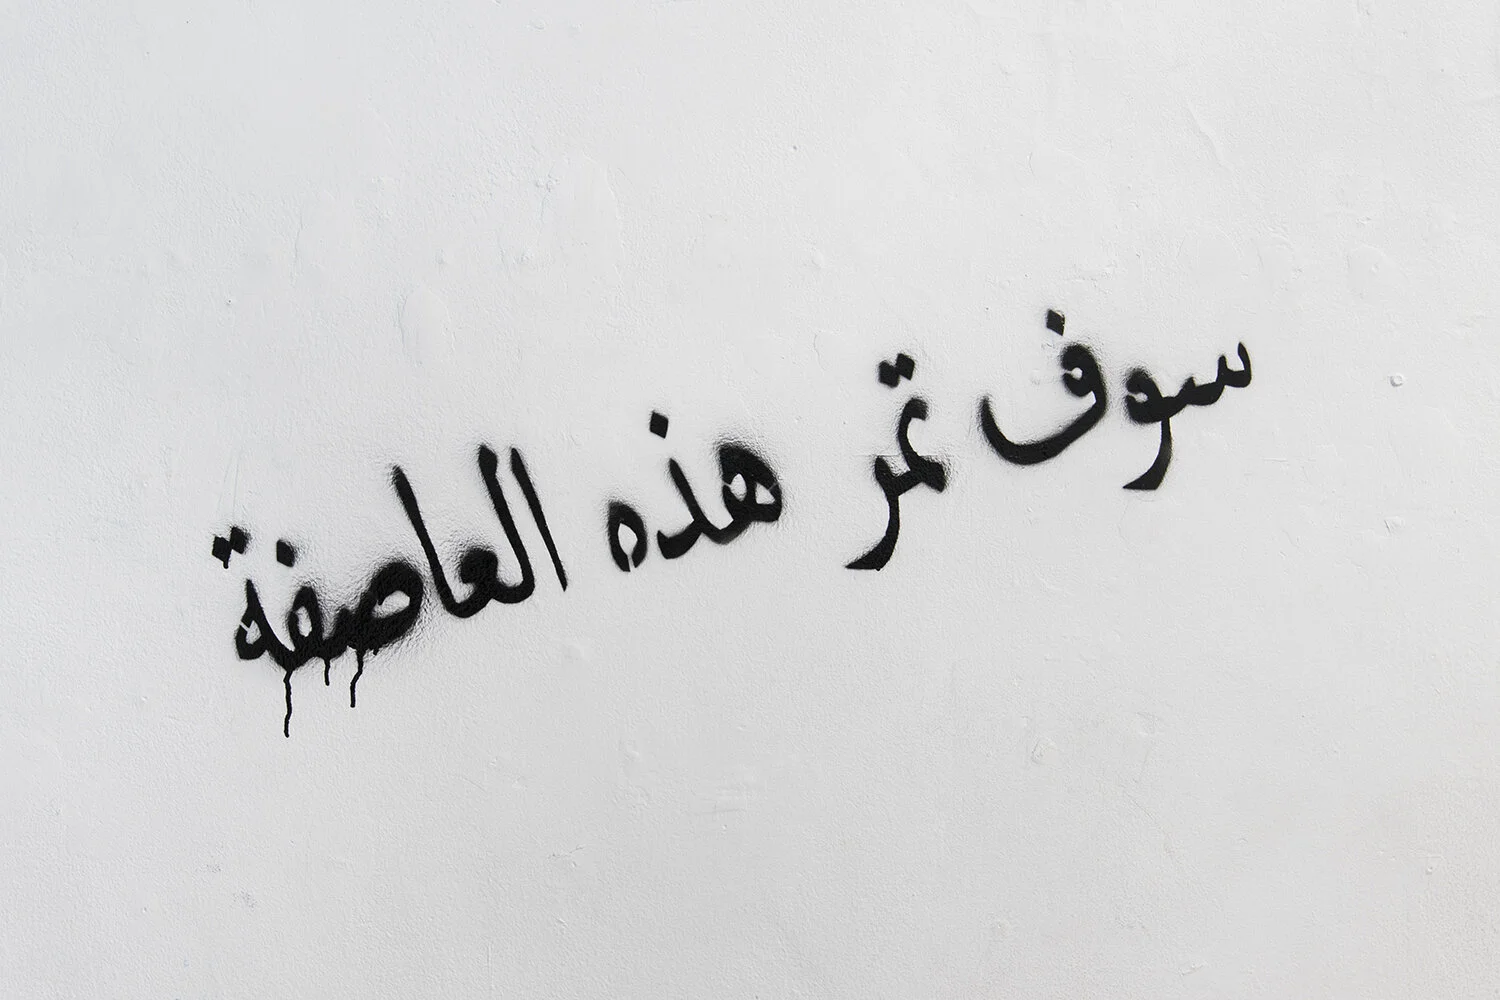 سوف تمر هذه العاصفة